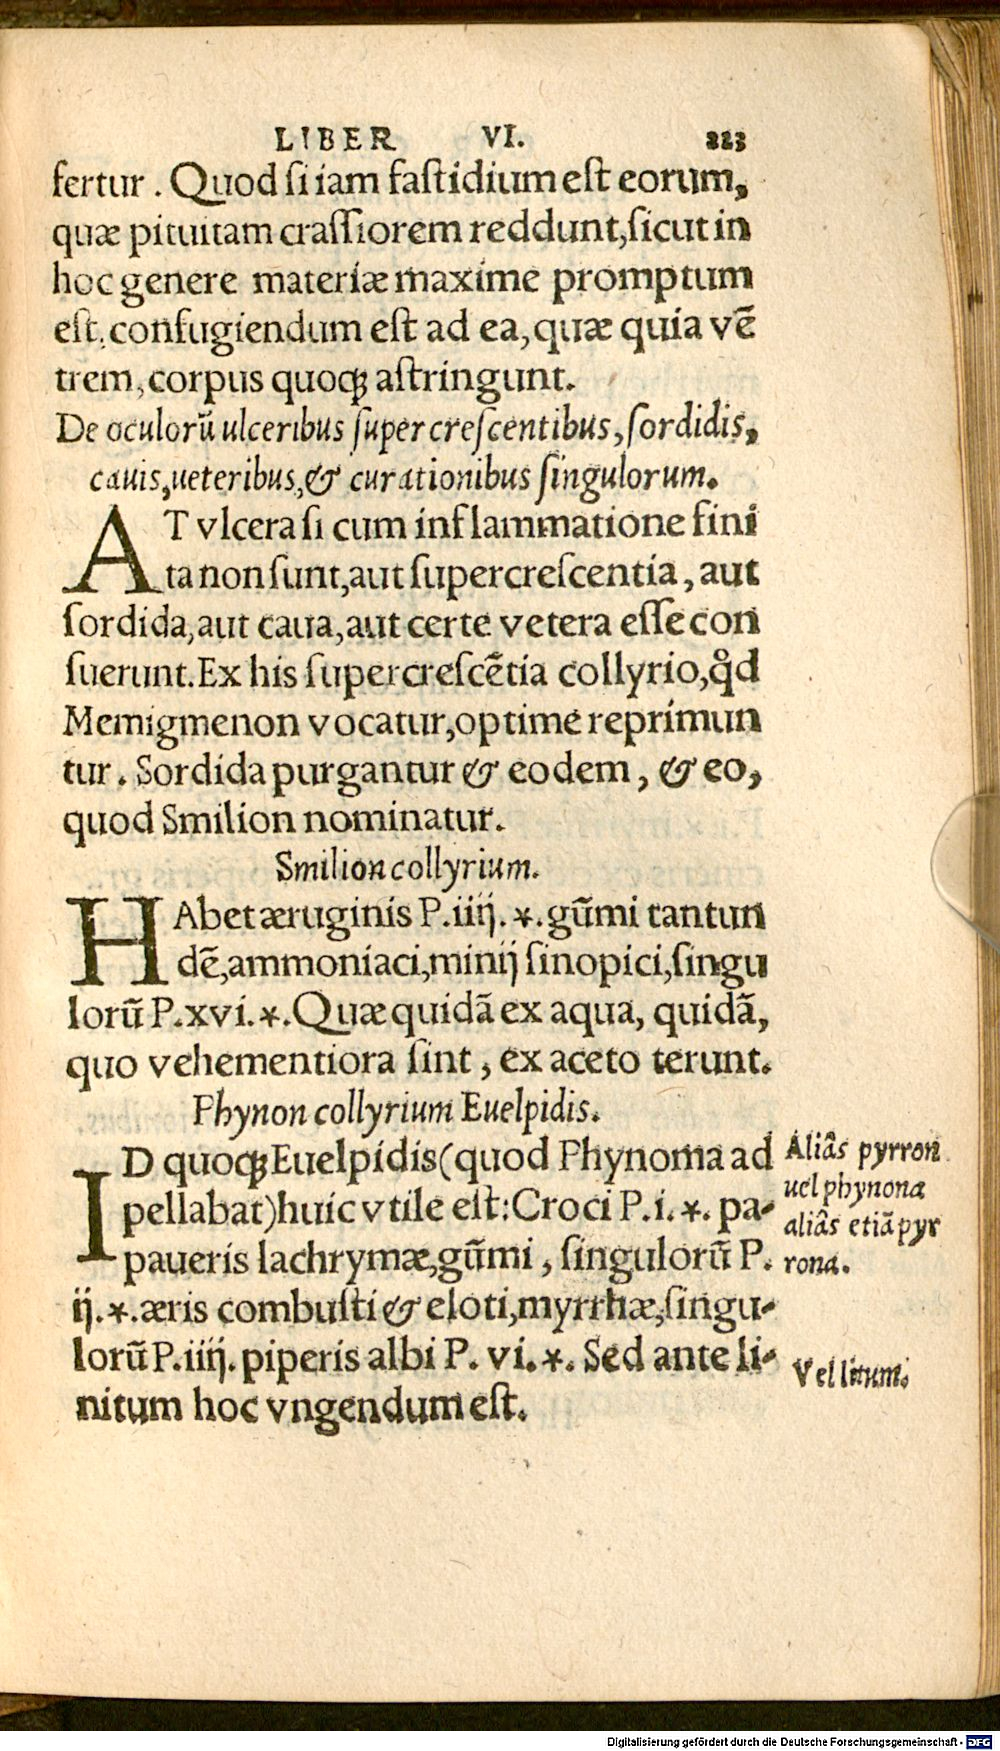 LIBER VI. 223
fertur. Quod si iam fastidium est eorum,
quæ pituitam crassiorem reddunt, sicut in
hoc genere materiæ maxime promptum
est, confugiendum est ad ea, quæ quia vẽ
trem, corpus quoqꝫ astringunt.
De oculorũ ulceribus supercrescentibus, sordidis,
cauis, ueteribus, & curationibus singulorum.
AT vlcera si cum inflammatione fini
ta non sunt, aut supercrescentia, aut
sordida, aut caua, aut certe vetera esse con
suerunt. Ex his supercrescẽtia collyrio, qd̊
Memigmenon vocatur, optime reprimun
tur. Sordida purgantur & eodem, & eo,
quod Smilion nominatur.
Smilion collyrium.
HAbet æruginis P. iiij. *. gũmi tantun
dẽ, ammoniaci, minij sinopici, singu
lorũ P. xvi. *. Quæ quidã ex aqua, quidã,
quo vehementiora sint, ex aceto terunt.
Phynon collyrium Euelpidis.
ID quoqꝫ Euelpidis (quod Phynoma ad
pellabat) huic vtile est: Croci P. i. *. pa-
paueris lachrymæ, gũmi, singulorũ P.
ij. *. æris combusti & eloti, myrrhæ, singu-
lorũ P. iiij. piperis albi P. vi. *. Sed ante li-
nitum hoc vngendum est.
Aliâs pyrron
uel phynona
aliâs etiã pyr
rona.
Vel litum.
Digitalisierung gefördert durch die Deutsche Forschungsgemeinschaft - DFG